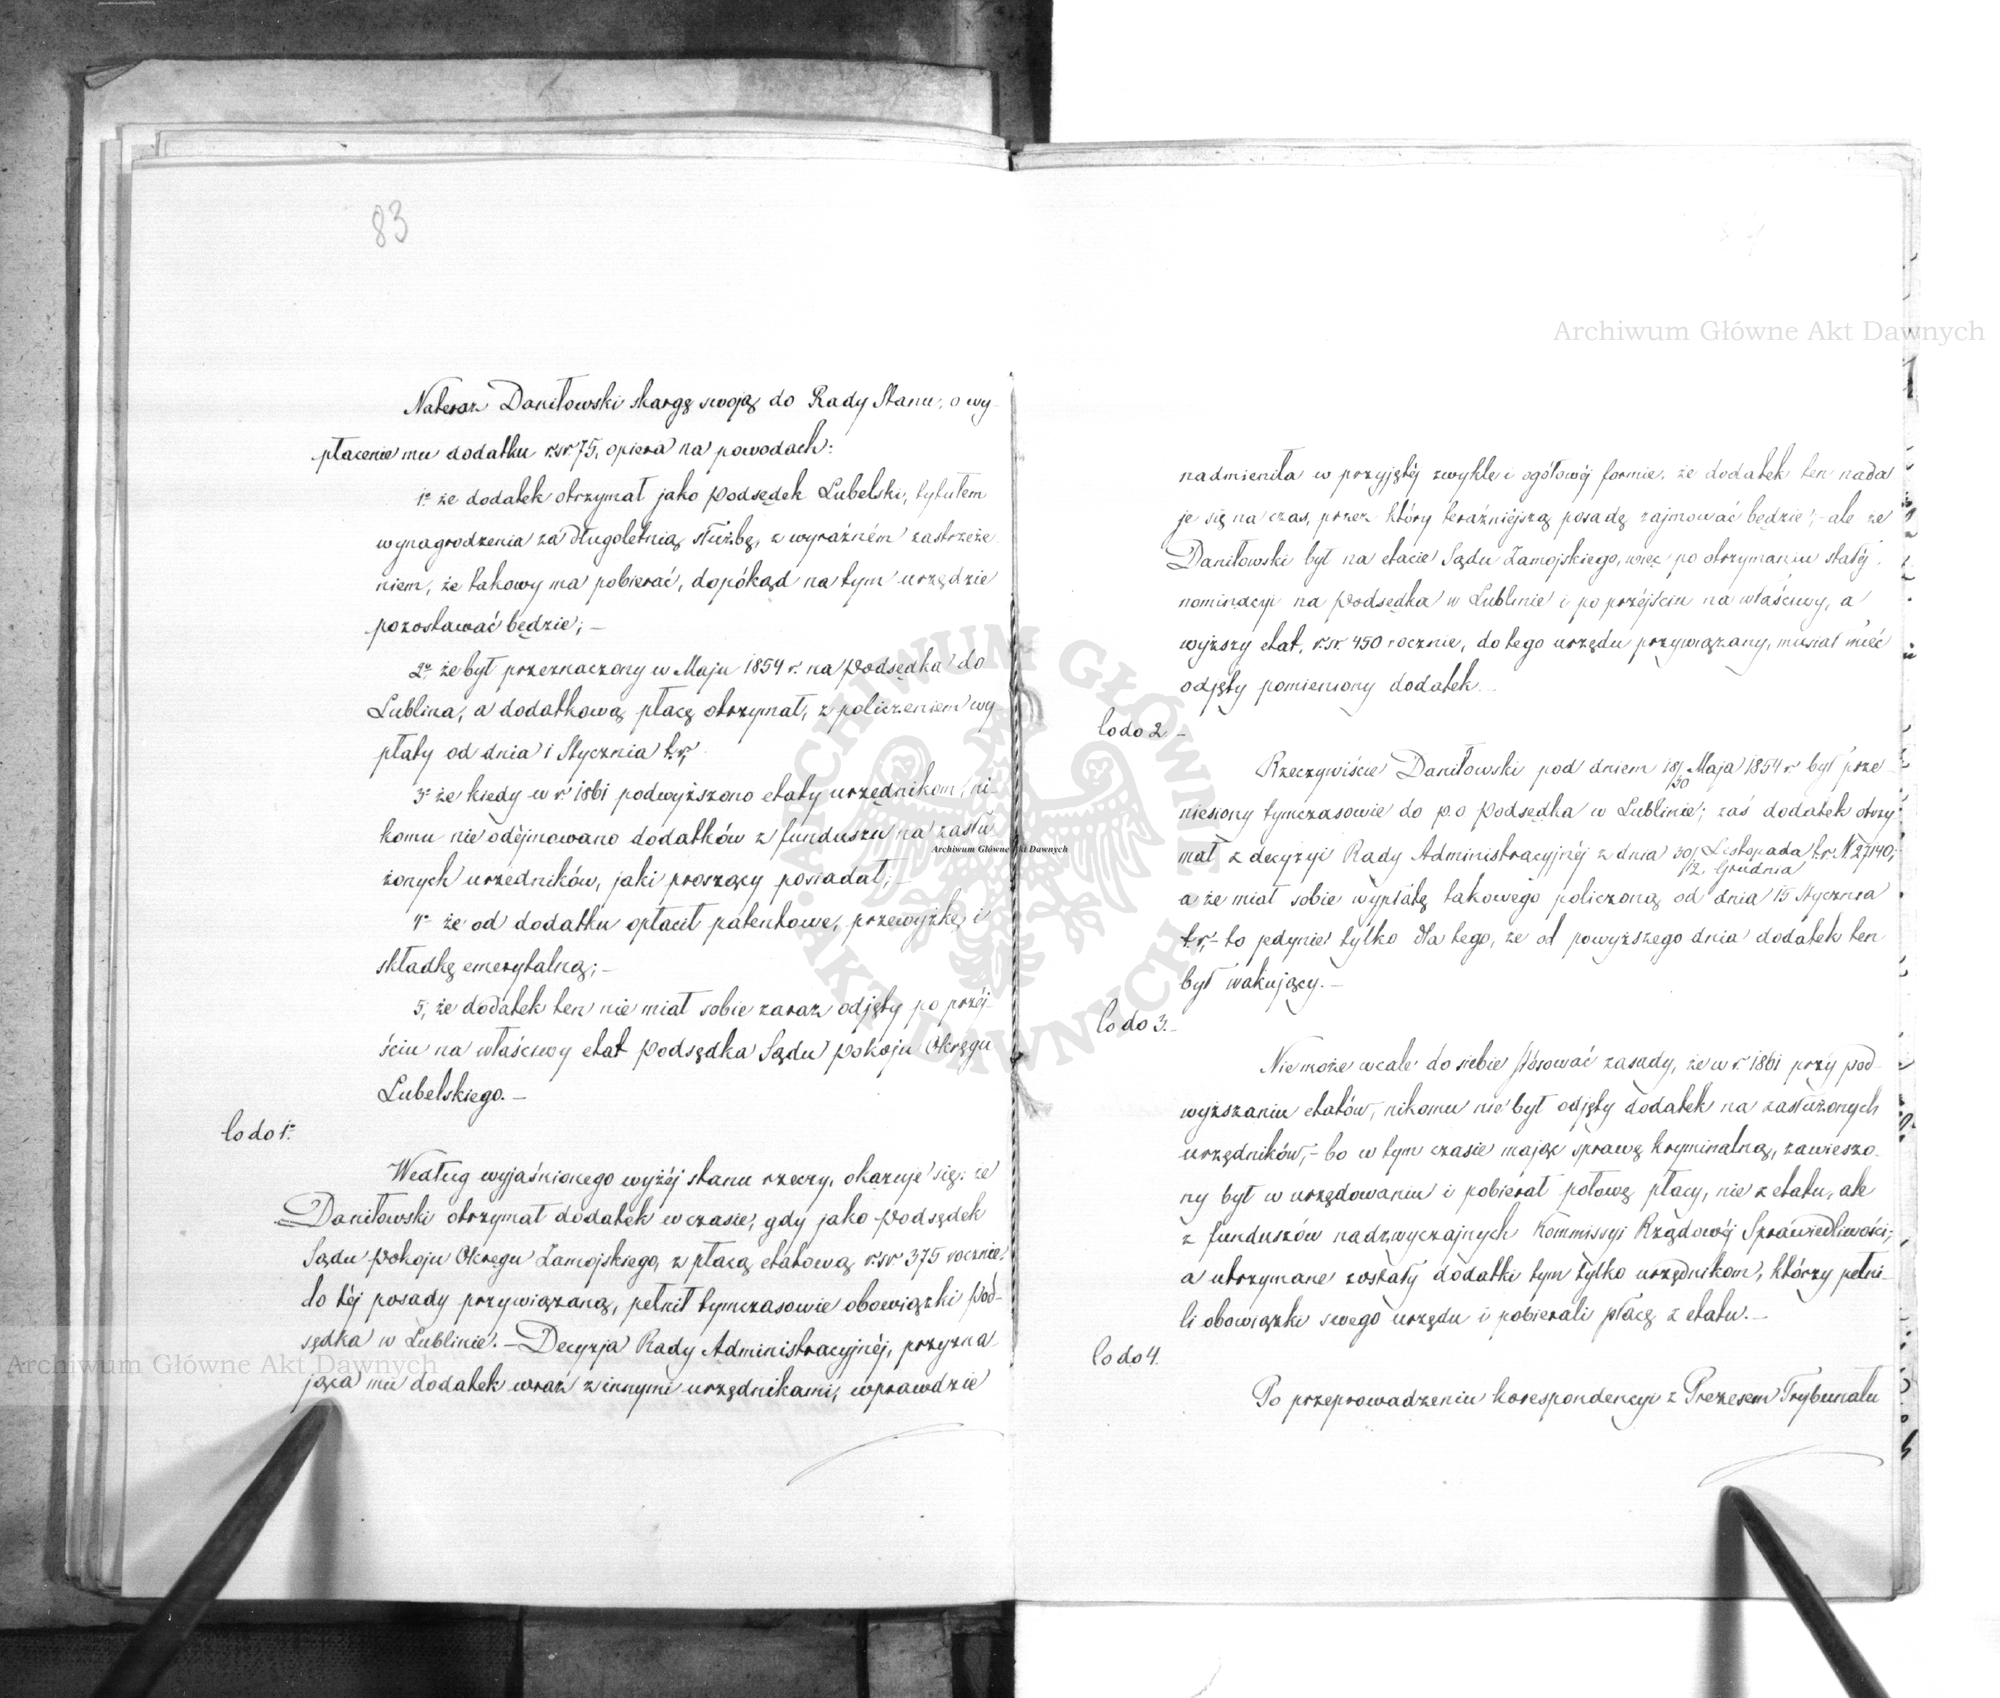 83
Nateraz Daniłowski skargę swoją do Rady Stanu, o wy-
płacenie mu dodatku r.sr. 75, opiera na powodach:
1º że dodatek otrzymał jako Podsędek Lubelski, tytułem
wynagrodzenia za długoletnią służbę, z wyraźném zastrzeże-
niem, że takowy ma pobierać, dopókąd na tym urzędzie
pozostawać będzie; —
2º że był przeznaczony w Maju 1854 r. na Podsędka do
Lublina, a dodatkową płacę otrzymał, z policzeniem wy-
płaty od dnia 1 Stycznia t.r.
3º że kiedy w r. 1861 podwyższono etaty urzędnikom, ni-
komu nie odéjmowano dodatków z funduszu na zasłu-
żonych urzędników, jaki proszący posiadał; —
4º że od dodatku opłacił patentowe, przewyżkę i
składkę emerytalną; —
5, że dodatek ten nie miał sobie zaraz odjęty po przéj-
ściu na właściwy etat Podsędka Sądu Pokoju Okręgu
Lubelskiego. —
Co do 1º
Według wyjaśnionego wyżéj stanu rzeczy, okazuje się: że
Daniłowski otrzymał dodatek w czasie, gdy jako Podsędek
Sądu Pokoju Okręgu Zamojskiego, z płacą etatową r.sr. 375 rocznie
do téj posady przywiązaną, pełnił tymczasowie obowiązki Pod-
sędka w Lublinie. — Decyzja Rady Administracyjnéj, przyzna-
jąca mu dodatek wraz z innymi urzędnikami, wprawdzie
nadmieniła w przyjętéj zwykle i ogółowéj formie, że dodatek ten nada-
je się na czas, przez który teraźniejszą posadę zajmować będzie; — ale że
Daniłowski był na etacie Sądu Zamojskiego, więc po otrzymaniu stałéj
nominacyi na Podsędka w Lublinie i po przéjściu na właściwy, a
wyższy etat, r.sr. 450 rocznie, do tego urzędu przywiązany, musiał mieć
odjęty pomieniony dodatek. —
Co do 2 —
Rzeczywiście Daniłowski pod dniem 18/30 Maja 1854 r. był prze-
niesiony tymczasowie do p.o Podsędka w Lublinie; zaś dodatek otrzy-
mał z decyzyi Rady Administracyjnéj z dnia 30/12 Listopada/Grudnia t.r. N. 27140;
a że miał sobie wypłatę takowego policzoną od dnia 15 Stycznia
t.r. — to jedynie tylko dla tego, że od powyższego dnia dodatek ten
był wakujący. —
Co do 3. —
Nie może wcale do siebie stósować zasady, że w r. 1861 przy pod-
wyższaniu etatów, nikomu nie był odjęty dodatek na zasłużonych
urzędników, — bo w tym czasie mając sprawę kryminalną, zawieszo-
ny był w urzędowaniu i pobierał połowę płacy, nie z etatu, ale
z funduszów nadzwyczajnych Kommissyi Rządowéj Sprawiedliwości;
a utrzymane zostały dodatki tym tylko urzędnikom, którzy pełni-
li obowiązki swego urzędu i pobierali płacę z etatu. —
Co do 4.
Po przeprowadzeniu korespondencyi z Prezesem Trybunału
Archiwum Główne Akt Dawnych
Archiwum Główne Akt Dawnych
Archiwum Główne Akt Dawnych
ARCHIWUM GŁÓWNE AKT DAWNYCH